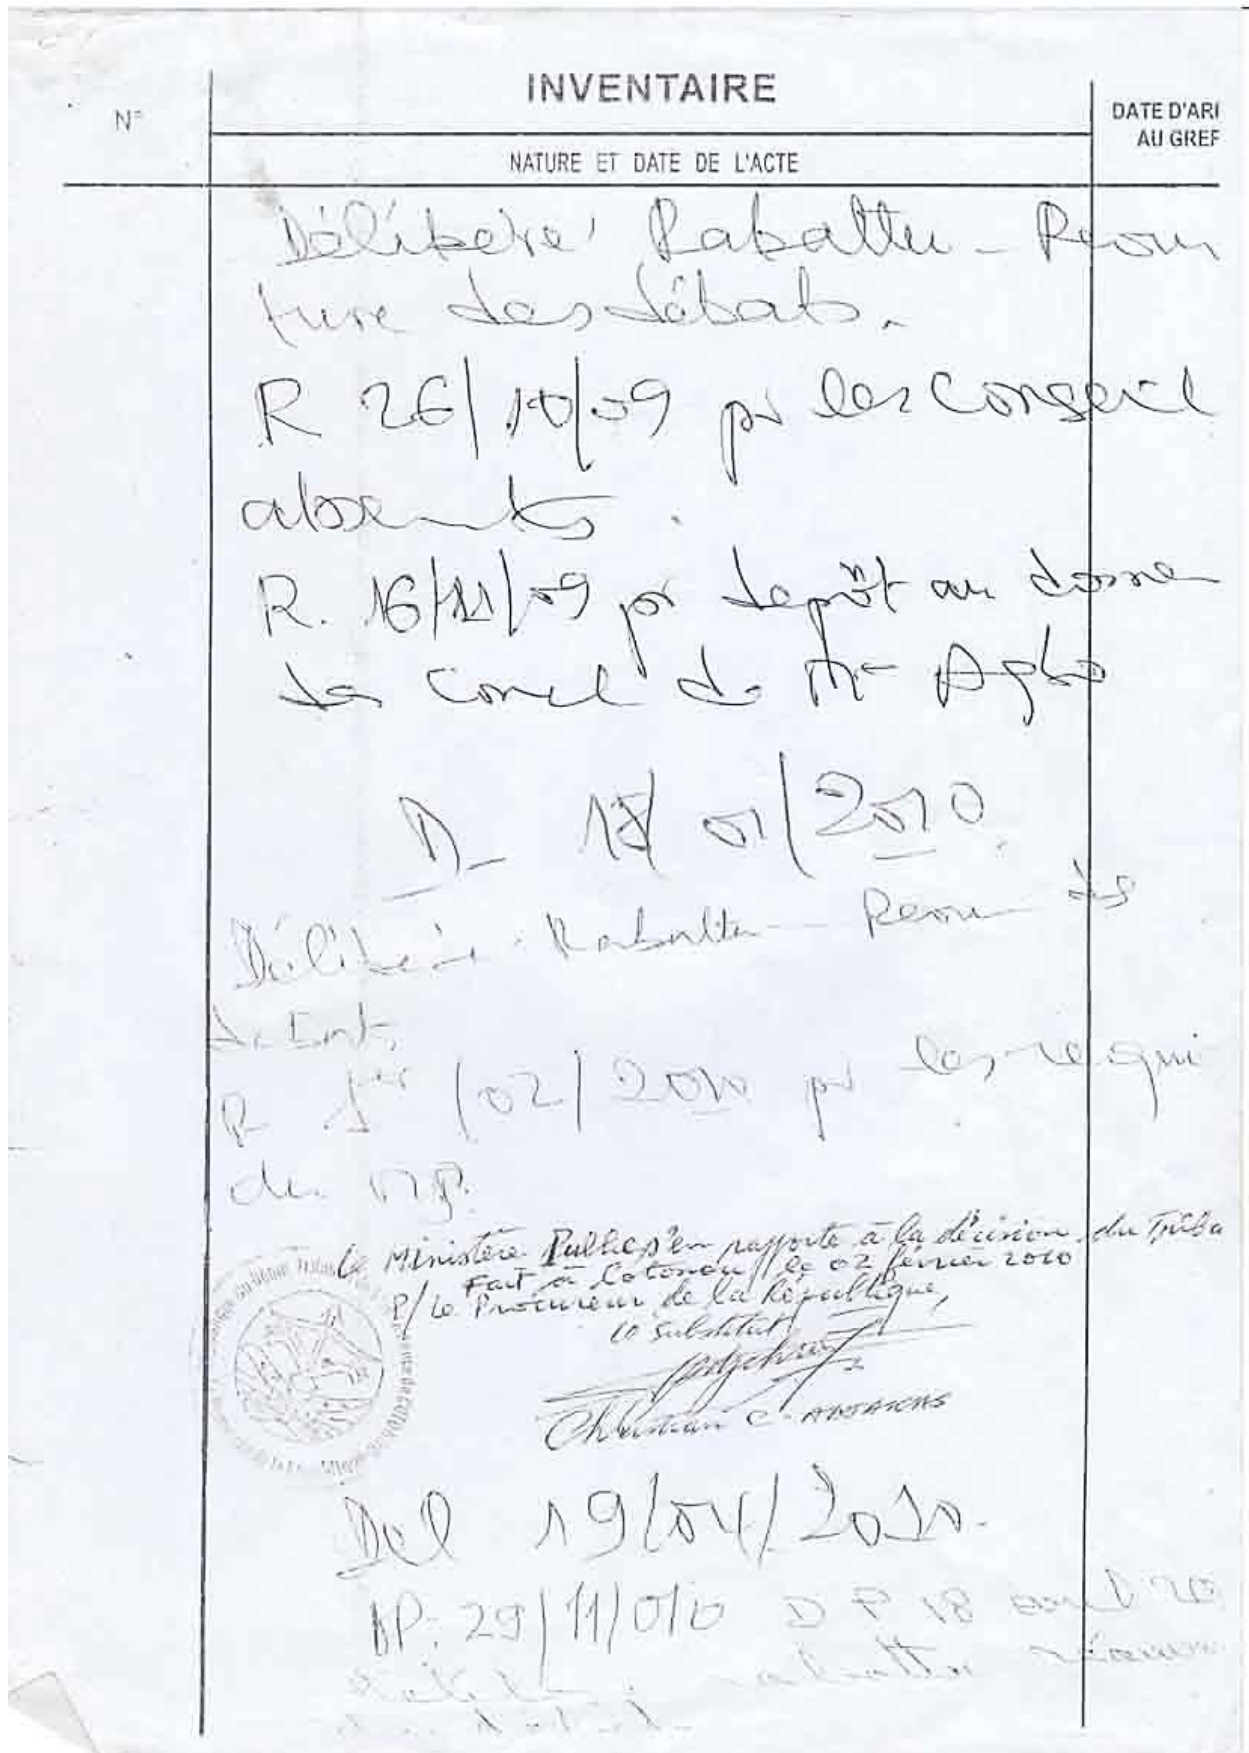 INVENTAIRE
N°
DATE D'ARI
AU GREF
NATURE ET DATE DE L'ACTE
Délibéré Rabattu - Reouv
ture des débats.
R 26/10/09 pr les conseil
absents.
R. 16/11/09 pr depôt au dossier
des concl de Me Agbo
D- 18/01/2010
Délibéré Rabattu - Reouv des
débats
R 1er/02/2010 pr les requi
du MP.
Le Ministère Public s'en rapporte à la décision du Tribu
Fait à Cotonou, le 02 février 2010
P/Le Procureur de la République,
Le Substitut
Christian C.
Del 19/04/2010.
DP: 29/11/010 D P 18
rabattu réouv